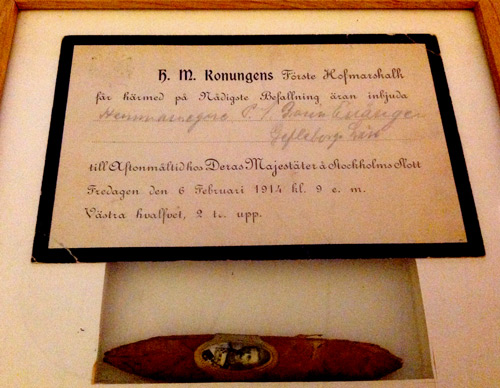 H. M. Konungens Förste Hofmarshalk
får härmed på Nådigste Befallning äran inbjuda
Hemmansegare P.
Gefleborgs Län
till Aftonmåltid hos Deras Majestäter å Stockholms Slott
Fredagen den 6 Februari 1914 kl. 9 e. m.
Västra hvalfvet, 2 tr. upp.